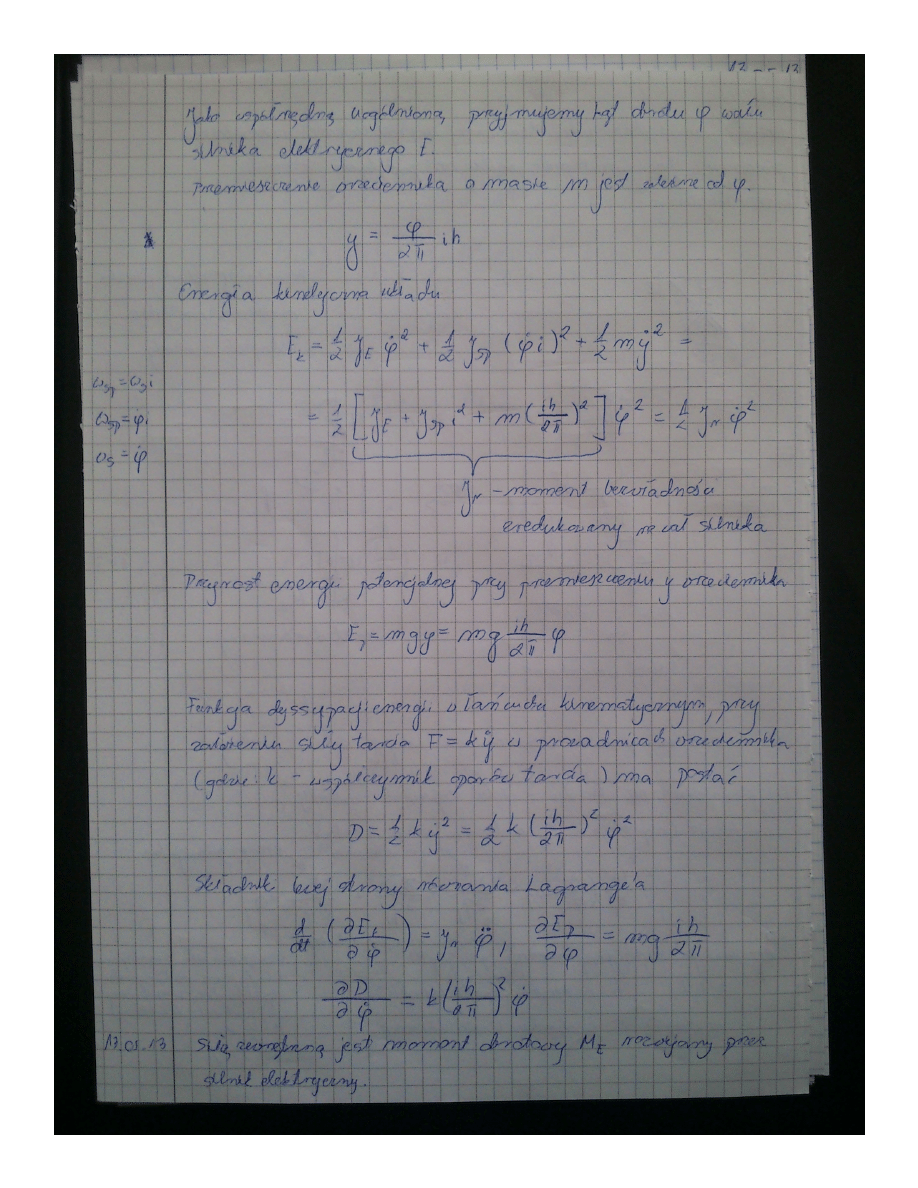 12 -- 12
Jako współrzędną uogólnioną przyjmujemy kąt obrotu φ wału
silnika elektrycznego E.
Przemieszczenie wrzeciennika o masie m jest zależne od φ.
y = φ/2π ih
Energia kinetyczna układu
E_k = 1/2 J_E φ̇² + 1/2 J_śp (φ̇i)² + 1/2 mẏ² =
ω_śp = ω_s i
= 1/2 [J_E + J_śp i² + m(ih/2π)²] φ̇² = 1/2 J_n φ̇²
ω_śp = φ̇i
ω_s = φ̇
J_n - moment bezwładności
zredukowany na wał silnika
Przyrost energii potencjalnej przy przemieszczeniu y wrzeciennika
E_p = mgy = mg ih/2π φ
Funkcja dyssypacji energii w łańcuchu kinematycznym, przy
założeniu siły tarcia F = kẏ w prowadnicach wrzeciennika
(gdzie: k - współczynnik oporów tarcia) ma postać
D = 1/2 kẏ² = 1/2 k (ih/2π)² φ̇²
Składnik lewej strony równania Lagrange'a
d/dt (∂E_k/∂φ̇) = J_n φ̈, ∂E_p/∂φ = mg ih/2π
∂D/∂φ̇ = k(ih/2π)² φ̇
17.01.13 Siłą zewnętrzną jest moment obrotowy M_E rozwijany przez
silnik elektryczny.